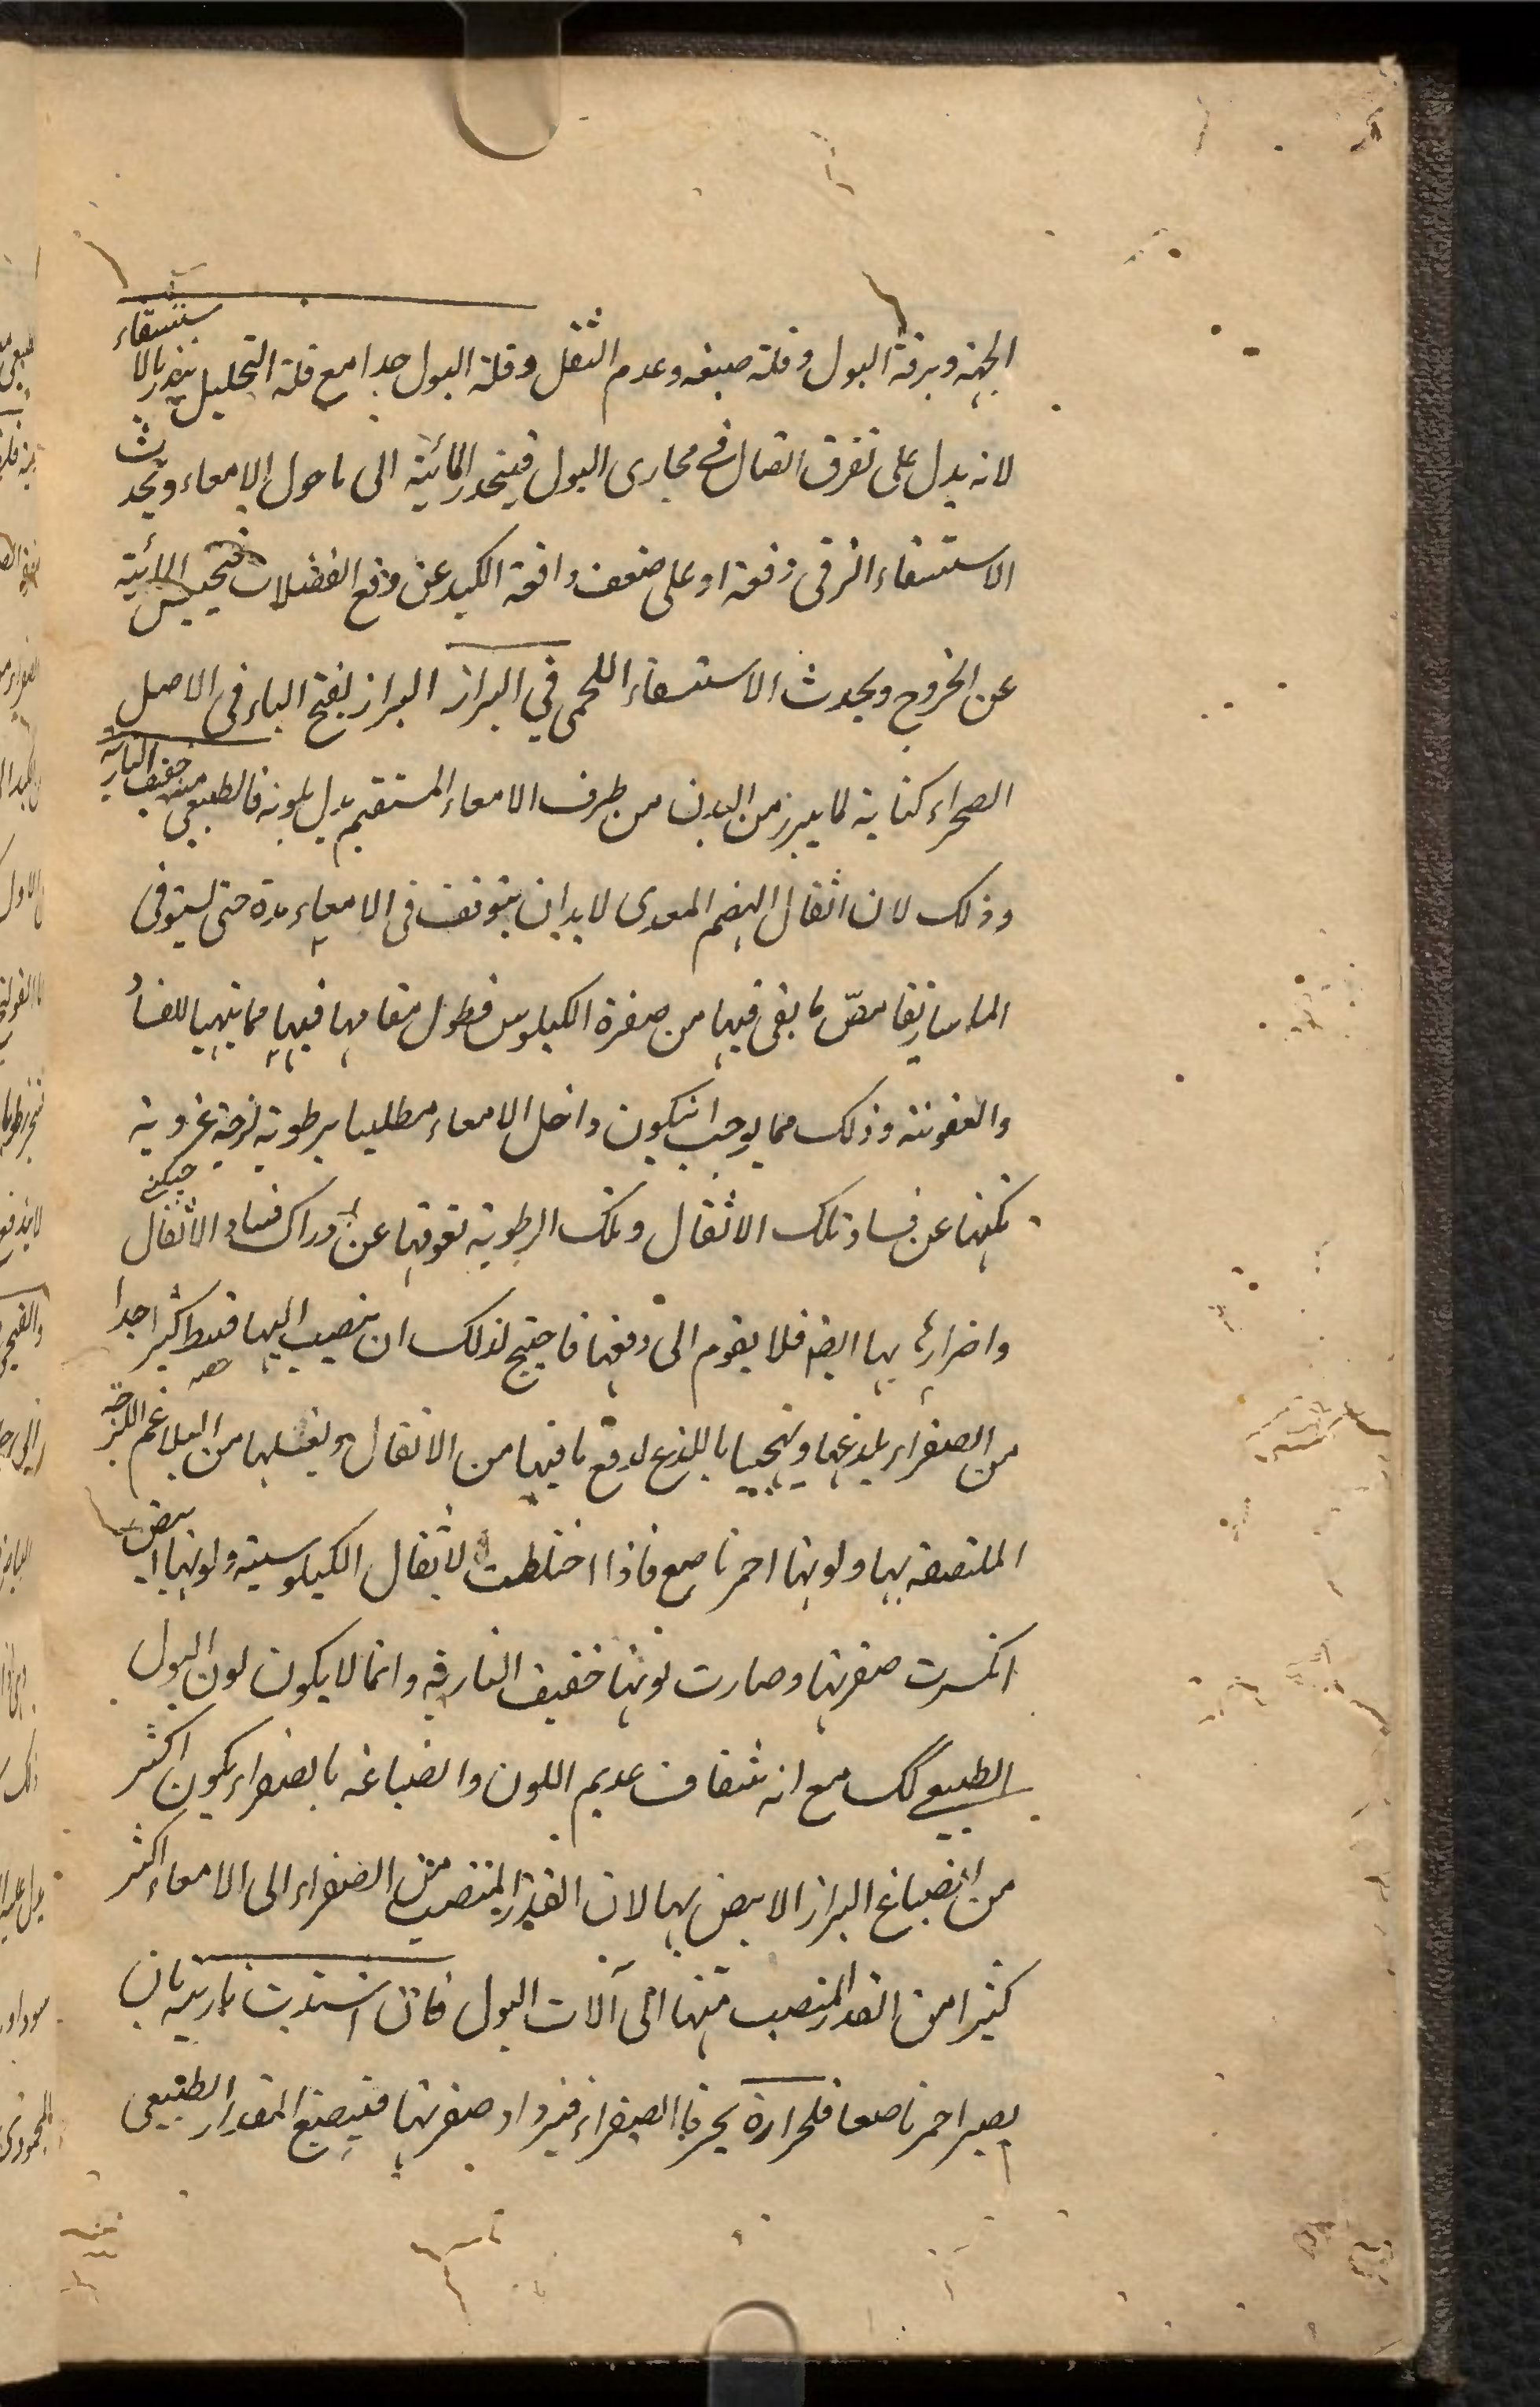 الجهة وبرقة البول وقلة صبغه وعدم الثفل وقلة البول جدا مع قلة التحليل ينذر بالاستسقاء
لانه يدل على تفرق اتصال في مجارى البول فينحدر المائية الى ما حول الامعاء ويحدث
الاستسقاء الزقى دفعة او على ضعف دافعة الكبد عن دفع الفضلات فتحبس المائية
عن الخروج ويحدث الاستسقاء اللحمى في البراز البراز بفتح الباء فى الاصل
الصحراء كناية لما يبرز من البدن من طرف الامعاء المستقيم يدل بلونه فالطبيعى منه خفيف النارية
وذلك لان اثفال الهضم المعدى لا بد ان يتوقف فى الامعاء مدة حتى يستوفى
الماساريقا مصّ ما بقى فيها من صفرة الكيلوس فطول مقامها فيها مما يهيها للفساد
والعفونة وذلك مما يوجب ان يكون داخل الامعاء مطليا برطوبة لزجة غروية
تكنها عن فساد تلك الاثفال وتلك الرطوبة تعوقها عن ادراك فساد الاثفال
واضرارها بها ايضا فلا يقوم الى دفعها فاحتيج لذلك ان ينصب اليها قسط كثير جدا
من الصفراء يلذعها ويهيجها باللذع لدفع ما فيها من الاثفال ويغسلها من البلاغم اللزجة
الملتصقة بها ولونها احمر ناصع فاذا اختلطت الاثفال الكيلوسية ولونها ابيض
انكسرت صفرتها وصارت لونها خفيف النارية وانما لا يكون لون البول
الطبيعي كك مع انه شفاف عديم اللون وانصباغه بالصفراء يكون اكثر
من انصباغ البراز الابيض بها لان القدر المنصب من الصفراء الى الامعاء اكثر
كثيرا من القدر المنصب منها الى آلات البول فان اشتدت ناريته بان
يصير احمر ناصعا فلحرارة يحرق الصفراء فيزداد صفرتها فيصبغ المقدار الطبيعى